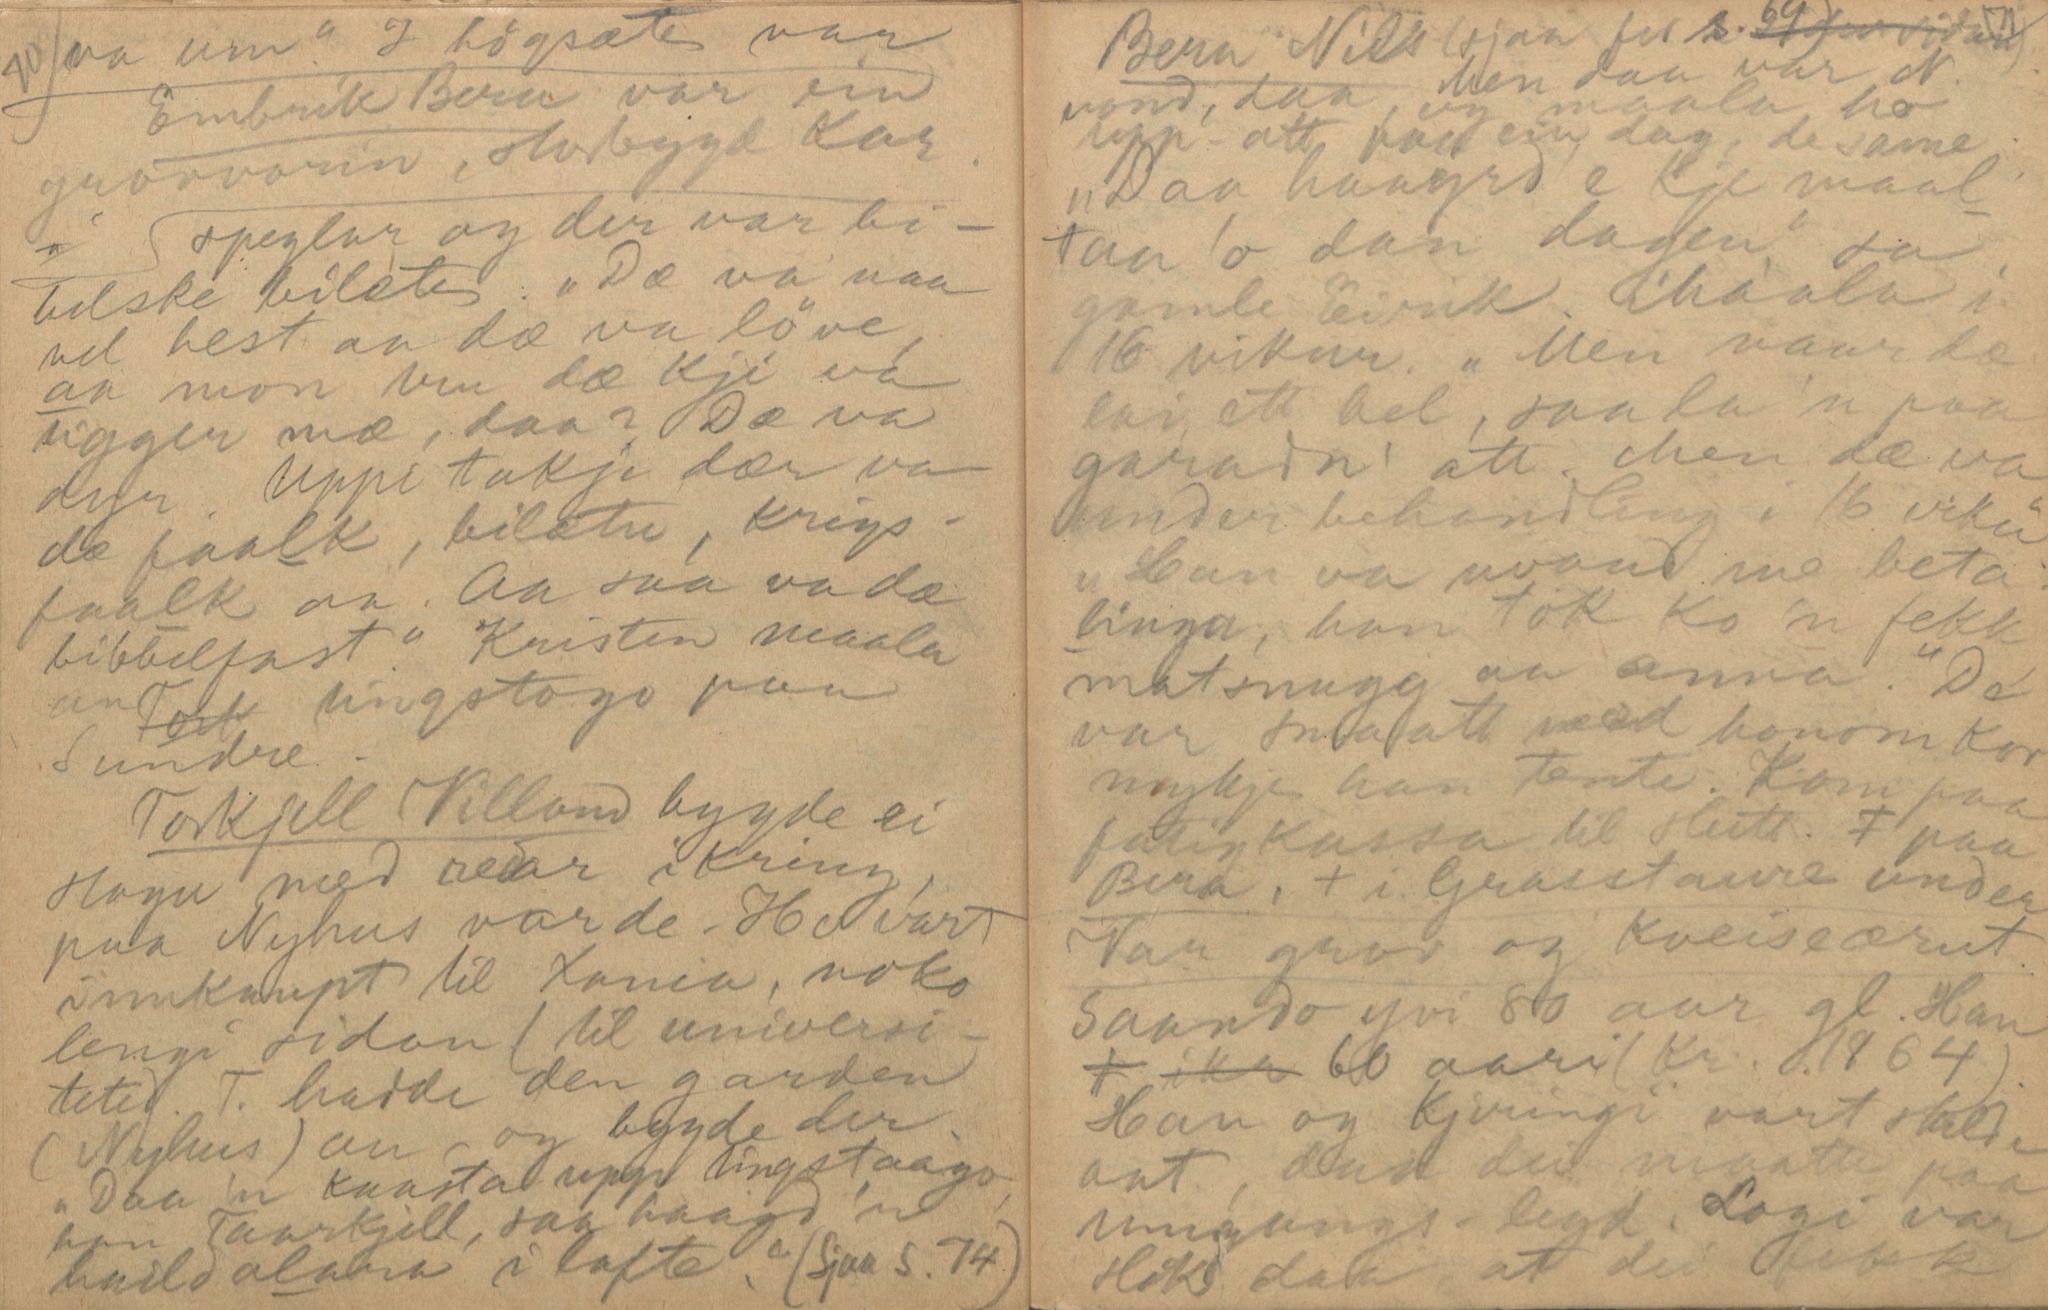 70
va um." I högsæte var
Embrik Bera var ein
grovvorin, storbygd Kar.
speglar og der var bi-
belske bilæte. "Dæ va naa
vel hest aa dæ va löve,
aa mon um dæ kji va
tigger mæ, daa? Dæ va
dyr. Uppi takje dær va
dæ faalk, bilæte, krigs-
faalk aa. Aa saa va dæ
bibbelfast." Kristen maala
an Tork lingstogo paa
Sundre.
Torkjell Villand bygde ei
stogu med rear ikring,
paa Nyhus varde. Ho vart
innkaupt til Xania, noko
lengi sidan (til universi-
tetet). T. hadde den garden
(Nyhus) an og bygde der.
"Daa 'n kaasta upp lingstaago,
han Taarkjell, saa haagd 'n
haildalana i lofte." (Sjaa S. 74)
Bera Nils (sjaa fyr s. 69)
71
vond, daa, Men daa var N.
og maala ho
upp-att paa ein dag, de same.
"Daa haagrd e kje maal-
taa 'o dan dagen," sa
gamle Eirik. Maala i
16 vikur. "Men naar dæ
lei ett hel, saa la 'n paa
garadn' att. Men dæ va
under behandling i 16 viku"
"Han va uvand me beta-
linga, han tok ko 'n fekk
matsnugg aa anna." De
var smaatt med honom kor
mykje han tente. Kom paa
fatigkassa til slutt. F paa
Bera, + i Grasstaure under
Var grov og kveiseærut.
Saando yvi 80 aar gl. Han
+ ikr 60 aari (Kr. 1864).
Han og Kjeringi vart skild
aat, daa dei maatte paa
umgangs-legd. Logi var
slik daa at dei fekk